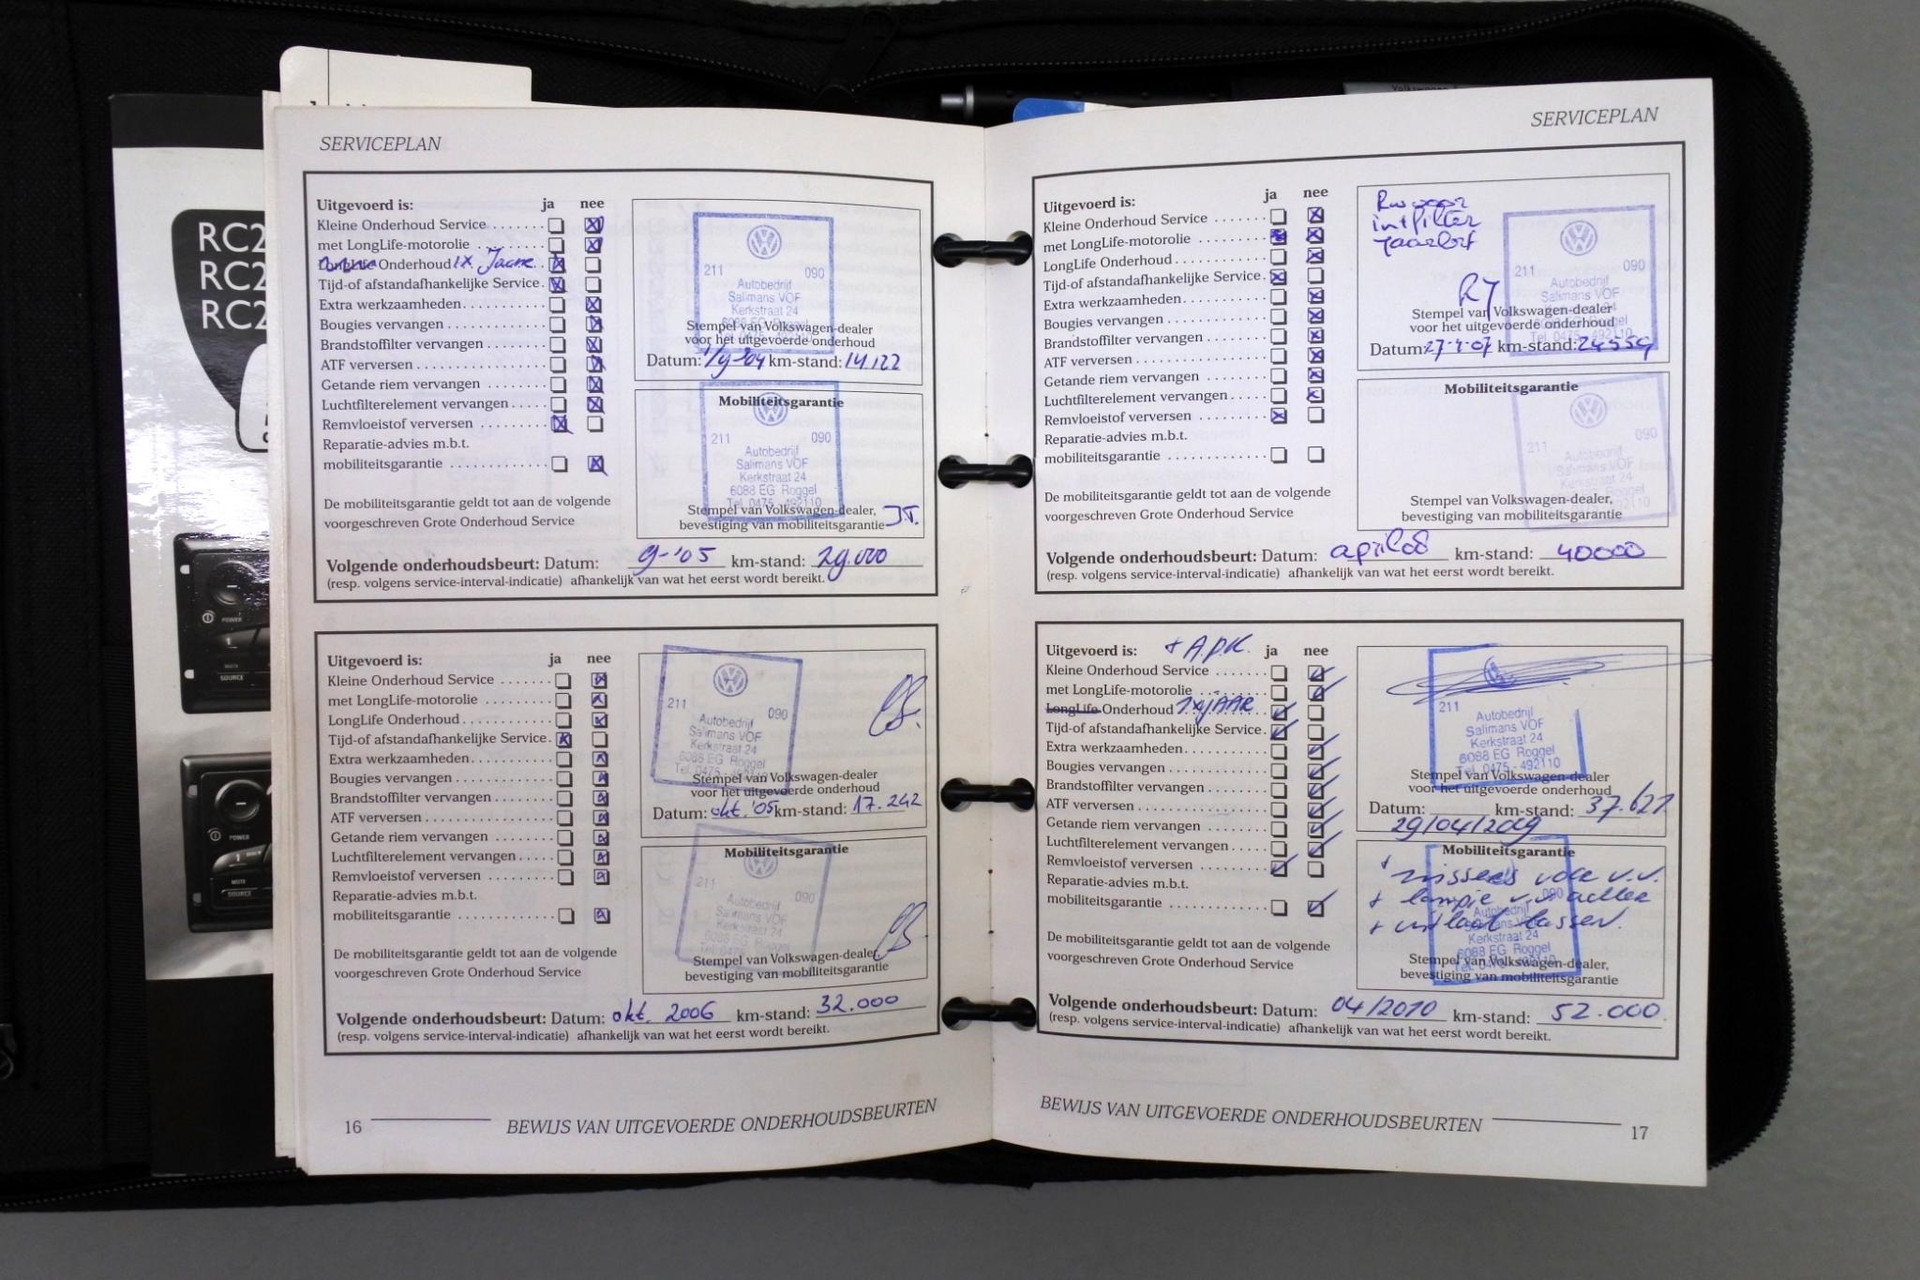 RC2
RC2
RC2
POWER
1
MUTE
SOURCE
POWER
1
MUTE
SOURCE
SERVICEPLAN
Uitgevoerd is: ja nee
Kleine Onderhoud Service
met LongLife-motorolie
Onderhoud 1x
Tijd-of afstandafhankelijke Service
Extra werkzaamheden
Bougies vervangen
Brandstoffilter vervangen
ATF verversen
Getande riem vervangen
Luchtfilterelement vervangen
Remvloeistof verversen
Reparatie-advies m.b.t.
mobiliteitsgarantie
De mobiliteitsgarantie geldt tot aan de volgende
voorgeschreven Grote Onderhoud Service
211 090
Autobedrijf
Salimans VOF
Kerkstraat 24
6088 EG Roggel
Stempel van Volkswagen-dealer
voor het uitgevoerde onderhoud
Datum: 1/9-'04 km-stand: 14122
Mobiliteitsgarantie
211 090
Autobedrijf
Salimans VOF
Kerkstraat 24
6088 EG Roggel
Tel. 0475 - 492110
Stempel van Volkswagen-dealer,
bevestiging van mobiliteitsgarantie
Volgende onderhoudsbeurt: Datum: 9-'05 km-stand: 29.000
(resp. volgens service-interval-indicatie) afhankelijk van wat het eerst wordt bereikt.
Uitgevoerd is: ja nee
Kleine Onderhoud Service
met LongLife-motorolie
LongLife Onderhoud
Tijd-of afstandafhankelijke Service
Extra werkzaamheden
Bougies vervangen
Brandstoffilter vervangen
ATF verversen
Getande riem vervangen
Luchtfilterelement vervangen
Remvloeistof verversen
Reparatie-advies m.b.t.
mobiliteitsgarantie
De mobiliteitsgarantie geldt tot aan de volgende
voorgeschreven Grote Onderhoud Service
211 090
Autobedrijf
Salimans VOF
Kerkstraat 24
6088 EG Roggel
Tel. 0475 - 492110
Stempel van Volkswagen-dealer
voor het uitgevoerde onderhoud
Datum: okt. '05 km-stand: 17.242
Mobiliteitsgarantie
211 090
Autobedrijf
Salimans VOF
Kerkstraat 24
Stempel van Volkswagen-dealer,
bevestiging van mobiliteitsgarantie
Volgende onderhoudsbeurt: Datum: okt. 2006 km-stand: 32.000
(resp. volgens service-interval-indicatie) afhankelijk van wat het eerst wordt bereikt.
16 BEWIJS VAN UITGEVOERDE ONDERHOUDSBEURTEN
SERVICEPLAN
Uitgevoerd is: ja nee
Kleine Onderhoud Service
met LongLife-motorolie
LongLife Onderhoud
Tijd-of afstandafhankelijke Service
Extra werkzaamheden
Bougies vervangen
Brandstoffilter vervangen
ATF verversen
Getande riem vervangen
Luchtfilterelement vervangen
Remvloeistof verversen
Reparatie-advies m.b.t.
mobiliteitsgarantie
De mobiliteitsgarantie geldt tot aan de volgende
voorgeschreven Grote Onderhoud Service
voor
intfilter
211 090
Autobedrijf
Salimans VOF
Kerkstraat 24
Stempel van Volkswagen-dealer
voor het uitgevoerde onderhoud
Tel. 0475 - 492110
Datum: 27-4-07 km-stand: 24559
Mobiliteitsgarantie
211 090
Autobedrijf
Salimans VOF
Kerkstraat 24
Stempel van Volkswagen-dealer,
bevestiging van mobiliteitsgarantie
Volgende onderhoudsbeurt: Datum: april 08 km-stand: 40000
(resp. volgens service-interval-indicatie) afhankelijk van wat het eerst wordt bereikt.
Uitgevoerd is: + A.P.K. ja nee
Kleine Onderhoud Service
met LongLife-motorolie
LongLife Onderhoud 1xJAAR
Tijd-of afstandafhankelijke Service
Extra werkzaamheden
Bougies vervangen
Brandstoffilter vervangen
ATF verversen
Getande riem vervangen
Luchtfilterelement vervangen
Remvloeistof verversen
Reparatie-advies m.b.t.
mobiliteitsgarantie
De mobiliteitsgarantie geldt tot aan de volgende
voorgeschreven Grote Onderhoud Service
211
Autobedrijf
Salimans VOF
Kerkstraat 24
6088 EG Roggel
Tel. 0475 - 492110
Stempel van Volkswagen-dealer
voor het uitgevoerde onderhoud
Datum: km-stand: 37.621
29/04/2009
Mobiliteitsgarantie
+ lampje
+ uitlaat lassen.
090
Autobedrijf
Kerkstraat 24
6088 EG Roggel
Stempel van Volkswagen-dealer,
bevestiging van mobiliteitsgarantie
Volgende onderhoudsbeurt: Datum: 04/2010 km-stand: 52.000
(resp. volgens service-interval-indicatie) afhankelijk van wat het eerst wordt bereikt.
BEWIJS VAN UITGEVOERDE ONDERHOUDSBEURTEN 17